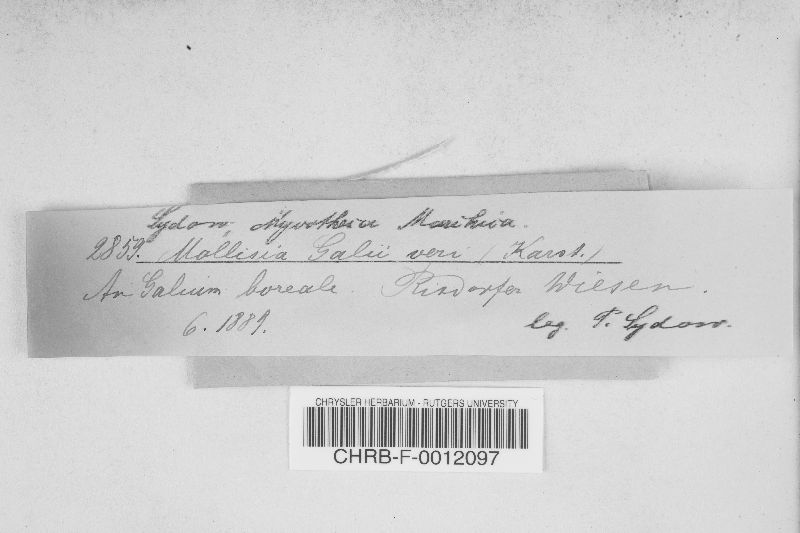 Sydow, Mycotheca Marchica.
2859. Mollisia Galii veri (Karst.)
An Galium boreale. Rixdorfer Wiesen.
6. 1889. leg. P. Sydow.
CHRYSLER HERBARIUM - RUTGERS UNIVERSITY
CHRB-F-0012097